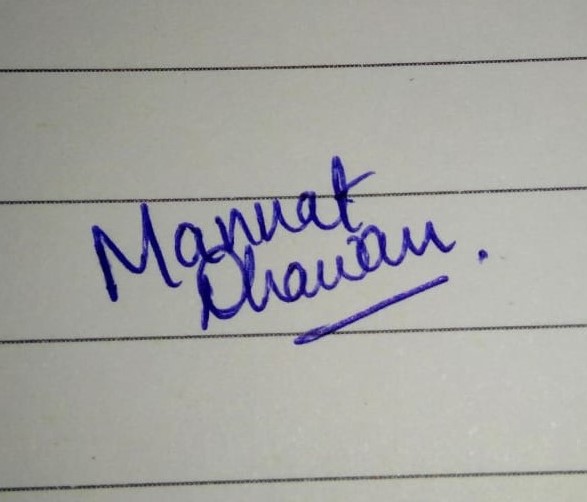 Mannat
Dhawan.